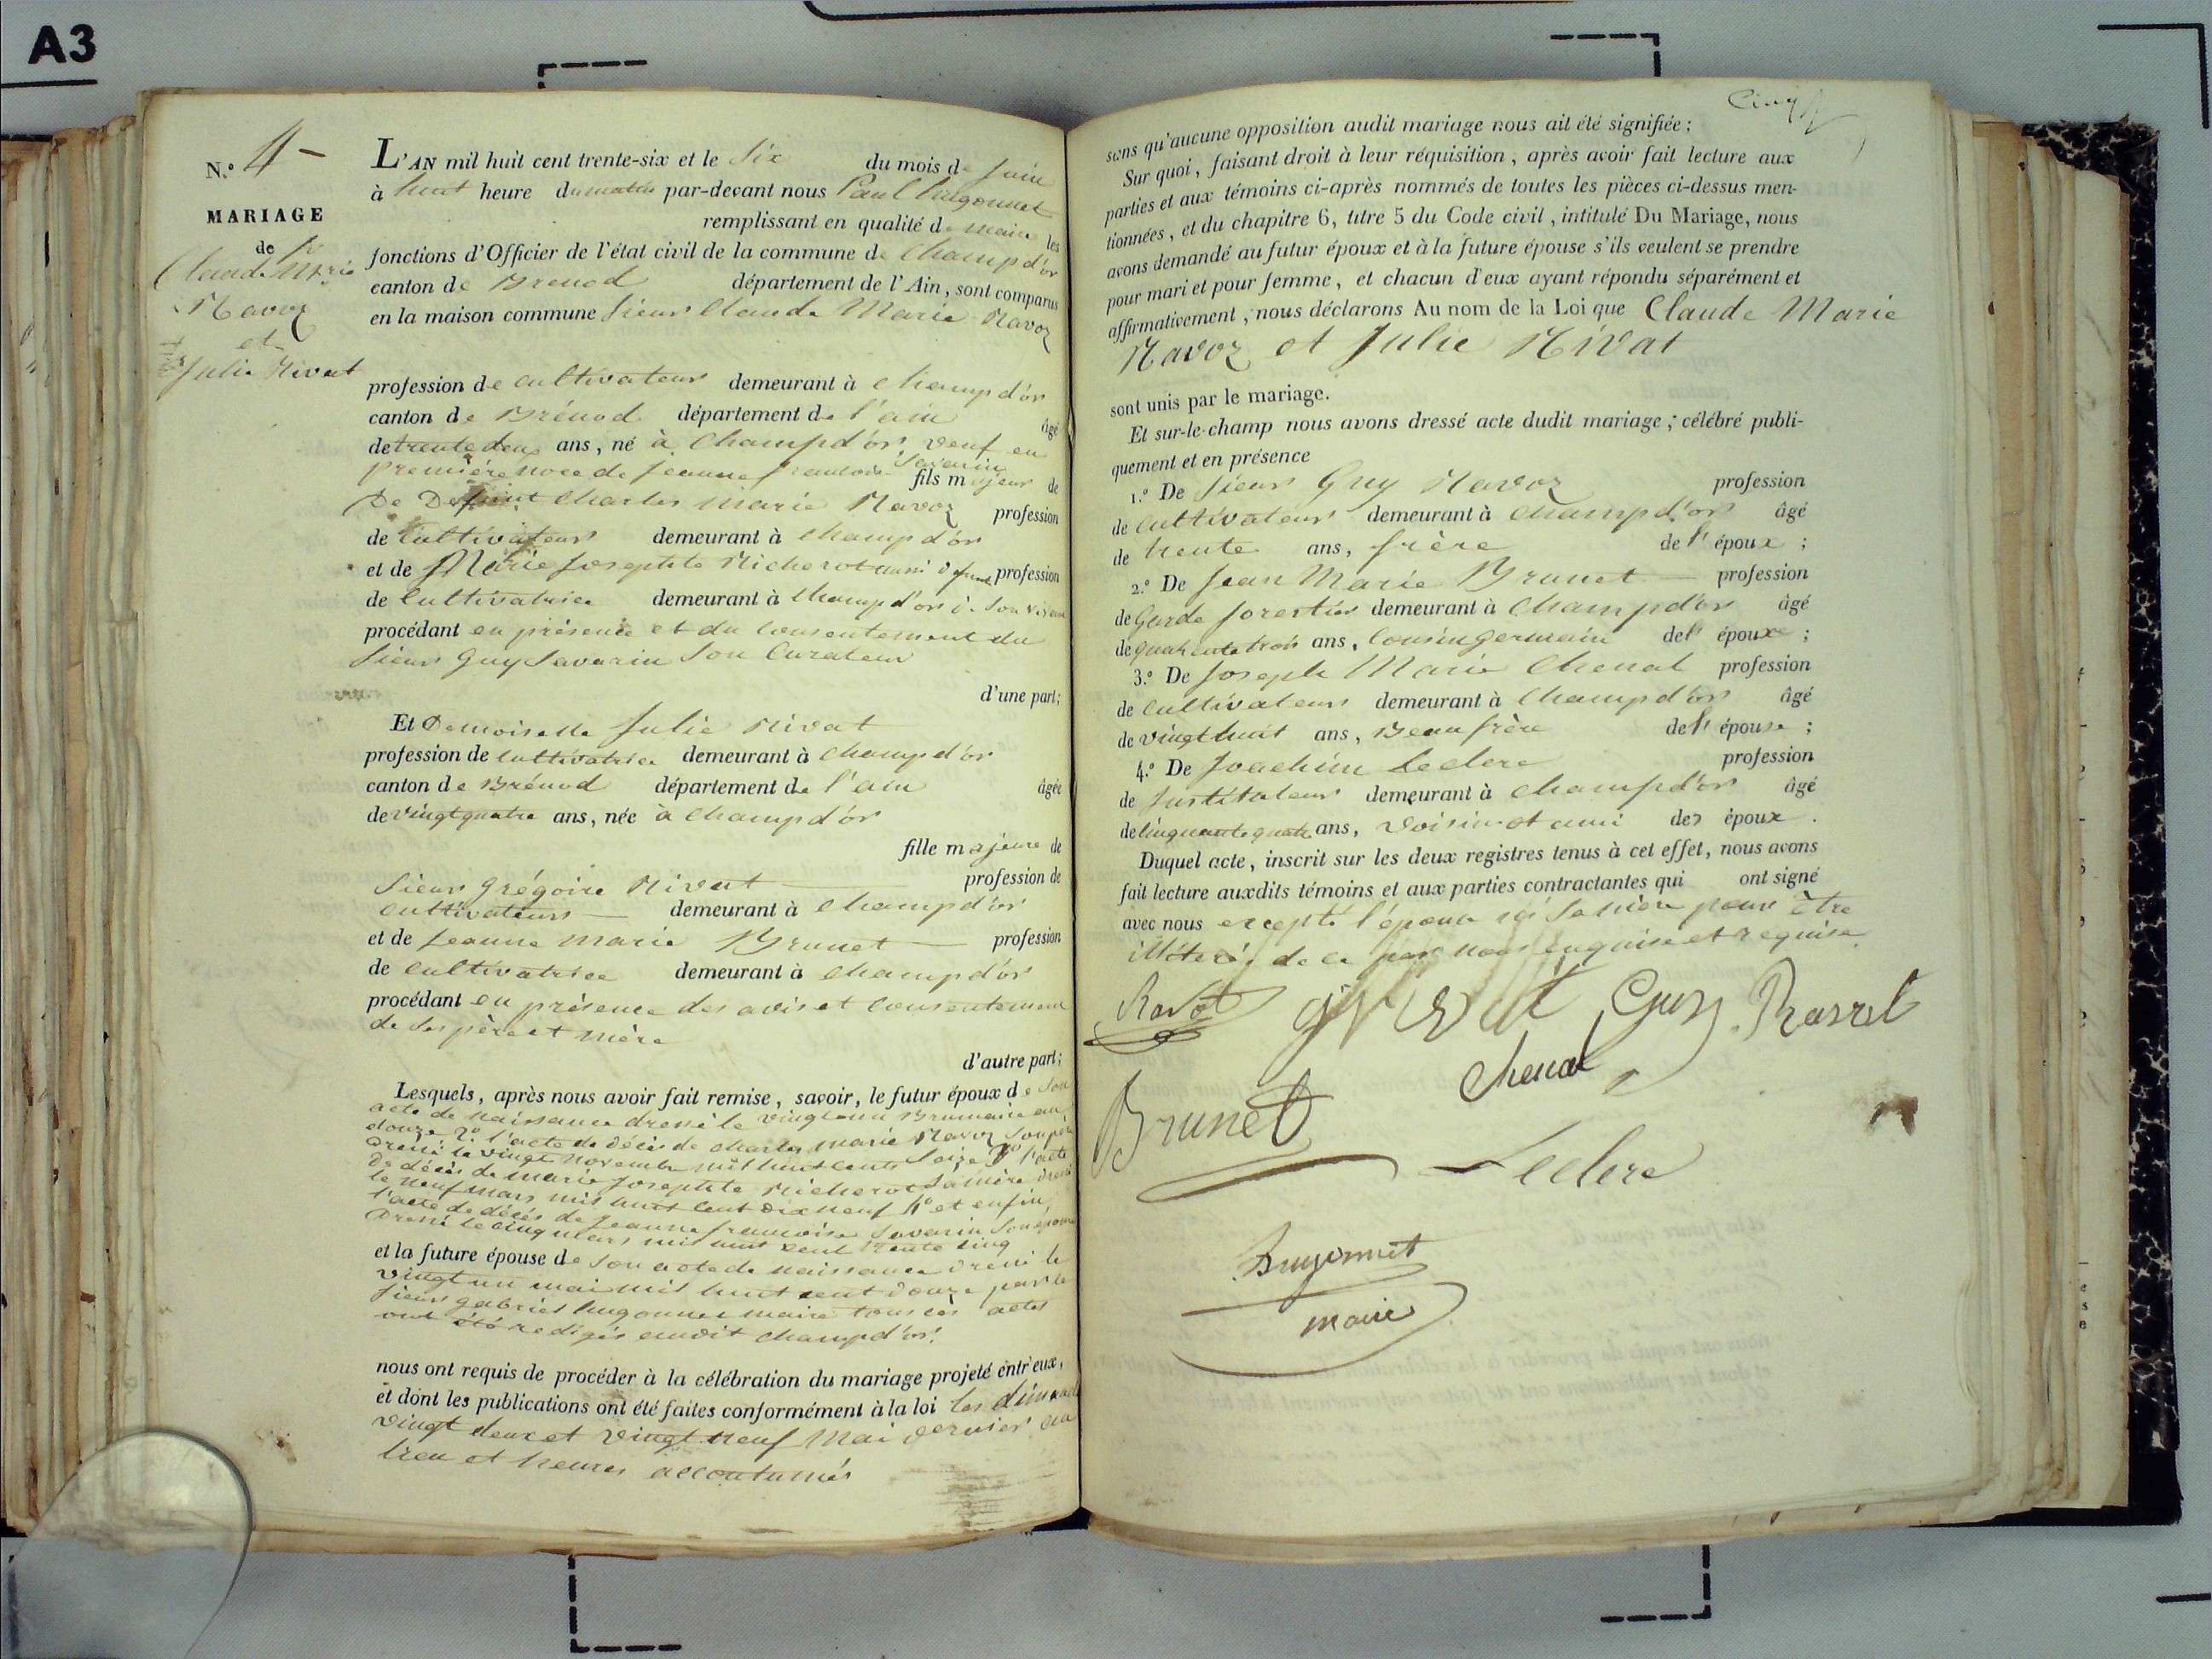 A3
N.° 4 -
MARIAGE
de
Claude Marie
Ravoz
et
Julie Rivat
L'AN mil huit cent trente-six et le Six du mois de Juin
à huit heure du matin par-devant nous Paul hugonnet
remplissant en qualité de maire les
fonctions d'Officier de l'état civil de la commune de Champ d'or
canton de Brenod département de l'Ain, sont comparus
en la maison commune Sieur Claude Marie Ravoz
profession de cultivateur demeurant à Champ d'or
canton de Brénod département de l'ain âgé
de trente deux ans, né à Champ d'or, veuf en
première noce de Jeanne francoise Savarin fils majeur de
De Defunt Charles marie Ravoz profession
de Cultivateur demeurant à Champ d'or
et de Marie Josephte Richerot aussi defunte profession
de Cultivatrice demeurant à Champ d'or de Son vivant
procédant en présence et du Consentement du
Sieur Guy Savarin Son Curateur
d'une part;
Et Demoiselle Julie Rivat
profession de cultivatrice demeurant à Champ d'or
canton de Brénod département de l'ain âgée
de vingt quatre ans, née à Champ d'or
fille majeure de
Sieur Grégoire Rivat profession de
cultivateur demeurant à Champ d'or
et de Jeanne marie Brunet profession
de cultivatrice demeurant à Champ d'or
procédant en présence des avis et Consentement
de Ses père et mère
d'autre part;
Lesquels, après nous avoir fait remise, savoir, le futur époux de Son
acte de naissance dressé le vingt un Brumaire an
douze 2° l'acte de décès de Charles marie Ravoz Son père
dressé le vingt novembre mil huit cent Seize 3° l'acte
de décès de marie Josephte Richerot Sa mère dressé
le neuf mars mil huit cent dix neuf 4° et enfin
l'acte de décès de Jeanne francoise Savarin Son épouse
Dressé le cinq mars mil huit cent trente cinq
et la future épouse de Son acte de naissance dressé le
vingt un mai mil huit cent douze par le
Sieur gabriel hugonnet maire tous ces actes
ont été redigés audit Champ d'or.
nous ont requis de procéder à la célébration du mariage projeté entr'eux,
et dont les publications ont été faites conformément à la loi les dimanche
vingt deux et vingt neuf Mai dernier au
lieu et heures accoutumés
Cinq
sans qu'aucune opposition audit mariage nous ait été signifiée;
Sur quoi, faisant droit à leur réquisition, après avoir fait lecture aux
parties et aux témoins ci-après nommés de toutes les pièces ci-dessus men-
tionnées, et du chapitre 6, titre 5 du Code civil, intitulé Du Mariage, nous
avons demandé au futur époux et à la future épouse s'ils veulent se prendre
pour mari et pour femme, et chacun d'eux ayant répondu séparément et
affirmativement, nous déclarons Au nom de la Loi que Claude Marie
Ravoz et Julie Rivat
sont unis par le mariage.
Et sur-le-champ nous avons dressé acte dudit mariage; célébré publi-
quement et en présence
1.° De Sieur Guy Ravoz profession
de Cultivateur demeurant à Champ d'or âgé
de trente ans, frère de l' époux ;
2.° De Jean Marie Brunet profession
de Garde forestier demeurant à Champ d'or âgé
de quarante trois ans, Cousin germain de l' épouse ;
3.° De Joseph Marie Chenal profession
de Cultivateur demeurant à Champ d'or âgé
de vingt huit ans, Beau frère de l' épouse ;
4.° De Joachim Leclerc profession
de Instituteur demeurant à Champ d'or âgé
de Cinquante quatre ans, voisin et ami des époux .
Duquel acte, inscrit sur les deux registres tenus à cet effet, nous avons
fait lecture auxdits témoins et aux parties contractantes qui ont signé
avec nous excepté l'épouse et Sa mère pour être
illéterés de ce par nous enquise et requise
Ravot g Rivat Guy Ravzet
Chenal
Brunet
Leclerc
hugonnet
maire